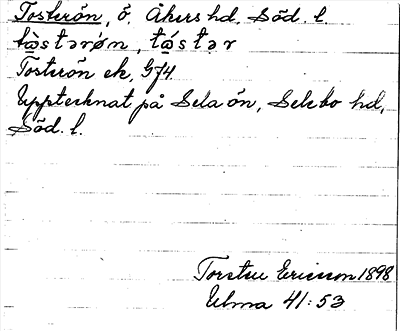 Tosterön, ö. Åkers hd. Söd. l.
tòstərøn, tóstər
Tosterön ek. G74
Upptecknat på Selaön, Selebo hd,
Söd. l.
Torsten Ericsson 1898
Ulma 41:53